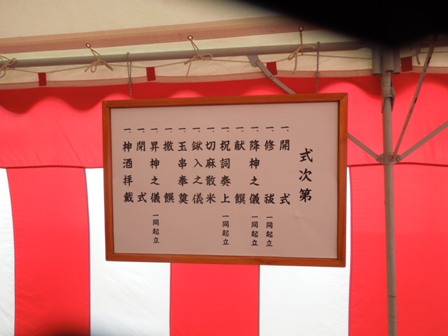 式次第
一、開式
一、修祓 一同起立
一、降神之儀 一同起立
一、献饌
一、祝詞奏上 一同起立
一、切麻散米
一、鍬入之儀
一、玉串奉奠
一、撤饌
一、昇神之儀 一同起立
一、閉式
一、神酒拝戴